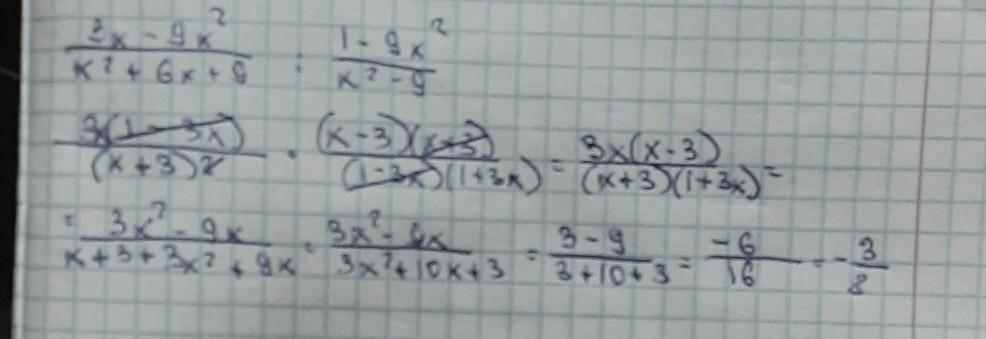 (3x - 9x²)/(x² + 6x + 9) : (1 - 9x²)/(x² - 9)
3x(1 - 3x)/(x + 3)² · (x - 3)(x + 3)/(1 - 3x)(1 + 3x) = 3x(x - 3)/(x + 3)(1 + 3x) =
= (3x² - 9x)/(x + 3 + 3x² + 9x) = (3x² - 9x)/(3x² + 10x + 3) = (3 - 9)/(3 + 10 + 3) = -6/16 = -3/8